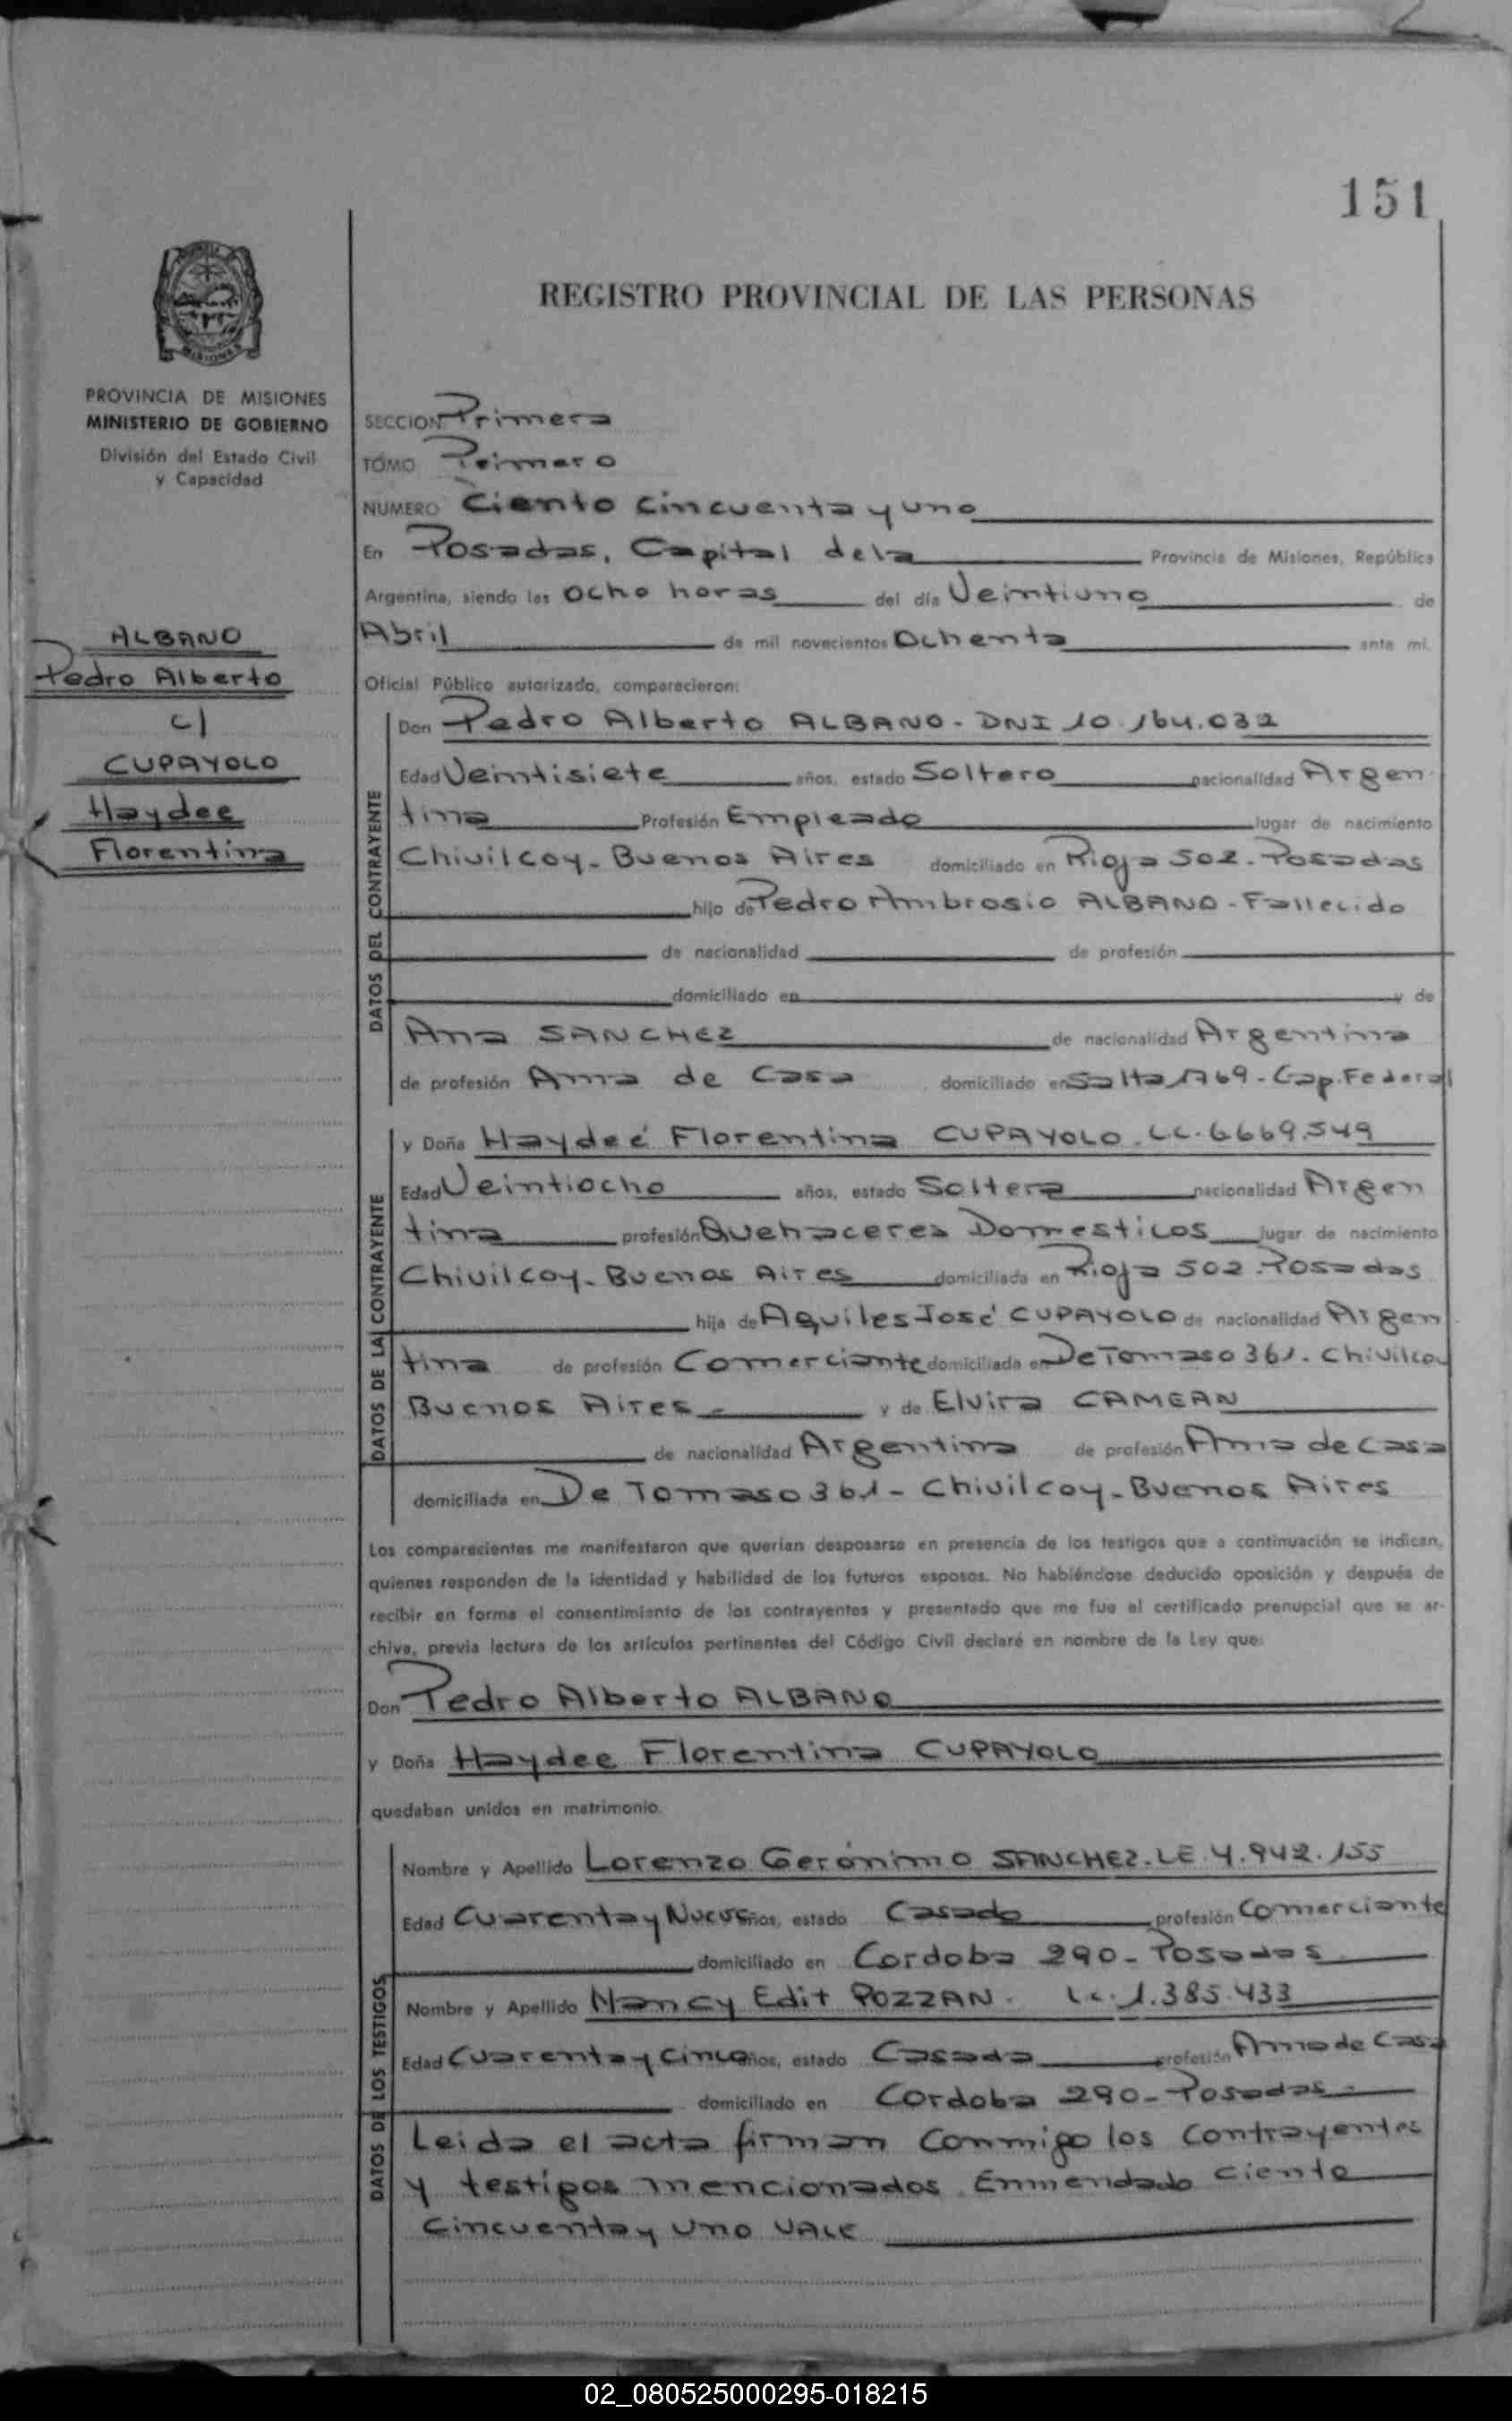 151
REGISTRO PROVINCIAL DE LAS PERSONAS
MISIONES
PROVINCIA DE MISIONES
MINISTERIO DE GOBIERNO
División del Estado Civil
y Capacidad
SECCION Primera
TOMO Primero
NUMERO Ciento cincuenta y uno
En Posadas, Capital de la Provincia de Misiones, República
Argentina, siendo las Ocho horas del día Veintiuno de
Abril de mil novecientos Ochenta ante mi.
Oficial Público autorizado, comparecieron:
ALBANO
Pedro Alberto
c/
CUPAYOLO
Haydee
Florentina
DATOS DEL CONTRAYENTE
Don Pedro Alberto ALBANO - DNI 10.164.032
Edad Veintisiete años, estado Soltero nacionalidad Argen
tina Profesión Empleado lugar de nacimiento
Chivilcoy - Buenos Aires domiciliado en Rioja 502 - Posadas
hijo de Pedro Ambrosio ALBANO - Fallecido
de nacionalidad de profesión
domiciliado en y de
Ana SANCHEZ de nacionalidad Argentina
de profesión Ama de Casa domiciliado en Salta 1769 - Cap. Federal
DATOS DE LA CONTRAYENTE
y Doña Haydeé Florentina CUPAYOLO. LC. 6669.549
Edad Veintiocho años, estado Soltera nacionalidad Argen
tina profesión Quehaceres Domesticos lugar de nacimiento
Chivilcoy - Buenos Aires domiciliada en Rioja 502 - Posadas
hija de Aquiles José CUPAYOLO de nacionalidad Argen
tina de profesión Comerciante domiciliada en De Tomaso 361 - Chivilcoy
Buenos Aires - y de Elvira CAMEAN
de nacionalidad Argentina de profesión Ama de casa
domiciliada en De Tomaso 361 - Chivilcoy - Buenos Aires
Los comparecientes me manifestaron que querían desposarse en presencia de los testigos que a continuación se indican,
quienes responden de la identidad y habilidad de los futuros esposos. No habiéndose deducido oposición y después de
recibir en forma el consentimiento de los contrayentes y presentado que me fue el certificado prenupcial que se ar-
chiva, previa lectura de los artículos pertinentes del Código Civil declaré en nombre de la Ley que:
Don Pedro Alberto ALBANO
y Doña Haydee Florentina CUPAYOLO
quedaban unidos en matrimonio.
DATOS DE LOS TESTIGOS
Nombre y Apellido Lorenzo Gerónimo SANCHEZ - LE. 4.942.155
Edad Cuarenta y Nueve años, estado Casado profesión Comerciante
domiciliado en Cordoba 290 - Posadas
Nombre y Apellido Nancy Edit POZZAN - Lc. 1.385.433
Edad Cuarenta y Cinco años, estado Casada profesión Ama de Casa
domiciliado en Cordoba 290 - Posadas -
Leida el acta firman conmigo los contrayentes
y testigos mencionados. Enmendado ciento
cincuenta y uno VALE
02_080525000295-018215